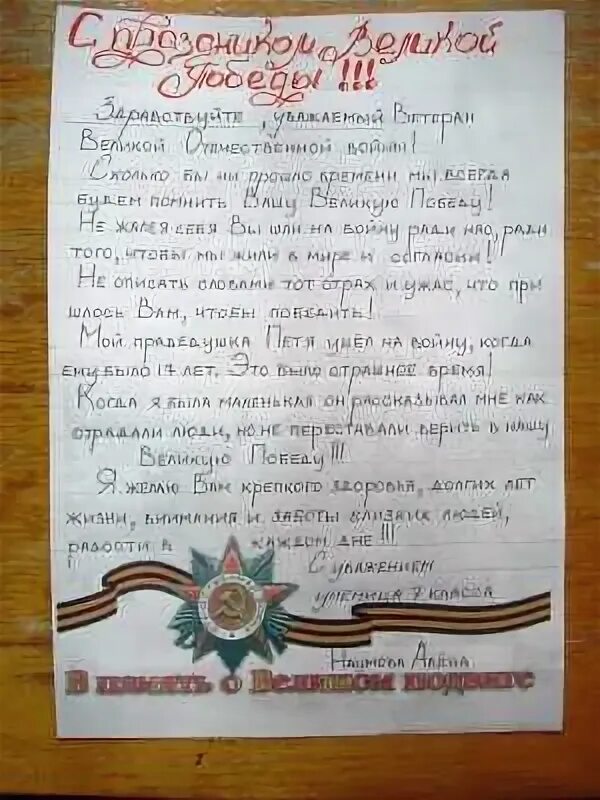 С праздником Великой
Победы !!!
Здравствуйте, уважаемый Ветеран
Великой Отечественной войны!
Сколько бы ни прошло времени мы всегда
будем помнить Вашу Великую Победу!
Не жалея себя Вы шли на войну ради нас, ради
того, чтобы мы жили в мире и согласии!
Не описать словами тот страх и ужас, что при
шлось Вам, чтобы победить!
Мой прадедушка Петя ушёл на войну, когда
ему было 17 лет. Это было страшное время!
Когда я была маленькая он рассказывал мне как
страдали люди, но не переставали верить в нашу
Великую Победу!!!
Я желаю Вам крепкого здоровья, долгих лет
жизни, внимания и заботы близких людей,
радости в каждом дне !!!
С уважением
ученица 7 класса
В память о Великом подвиге